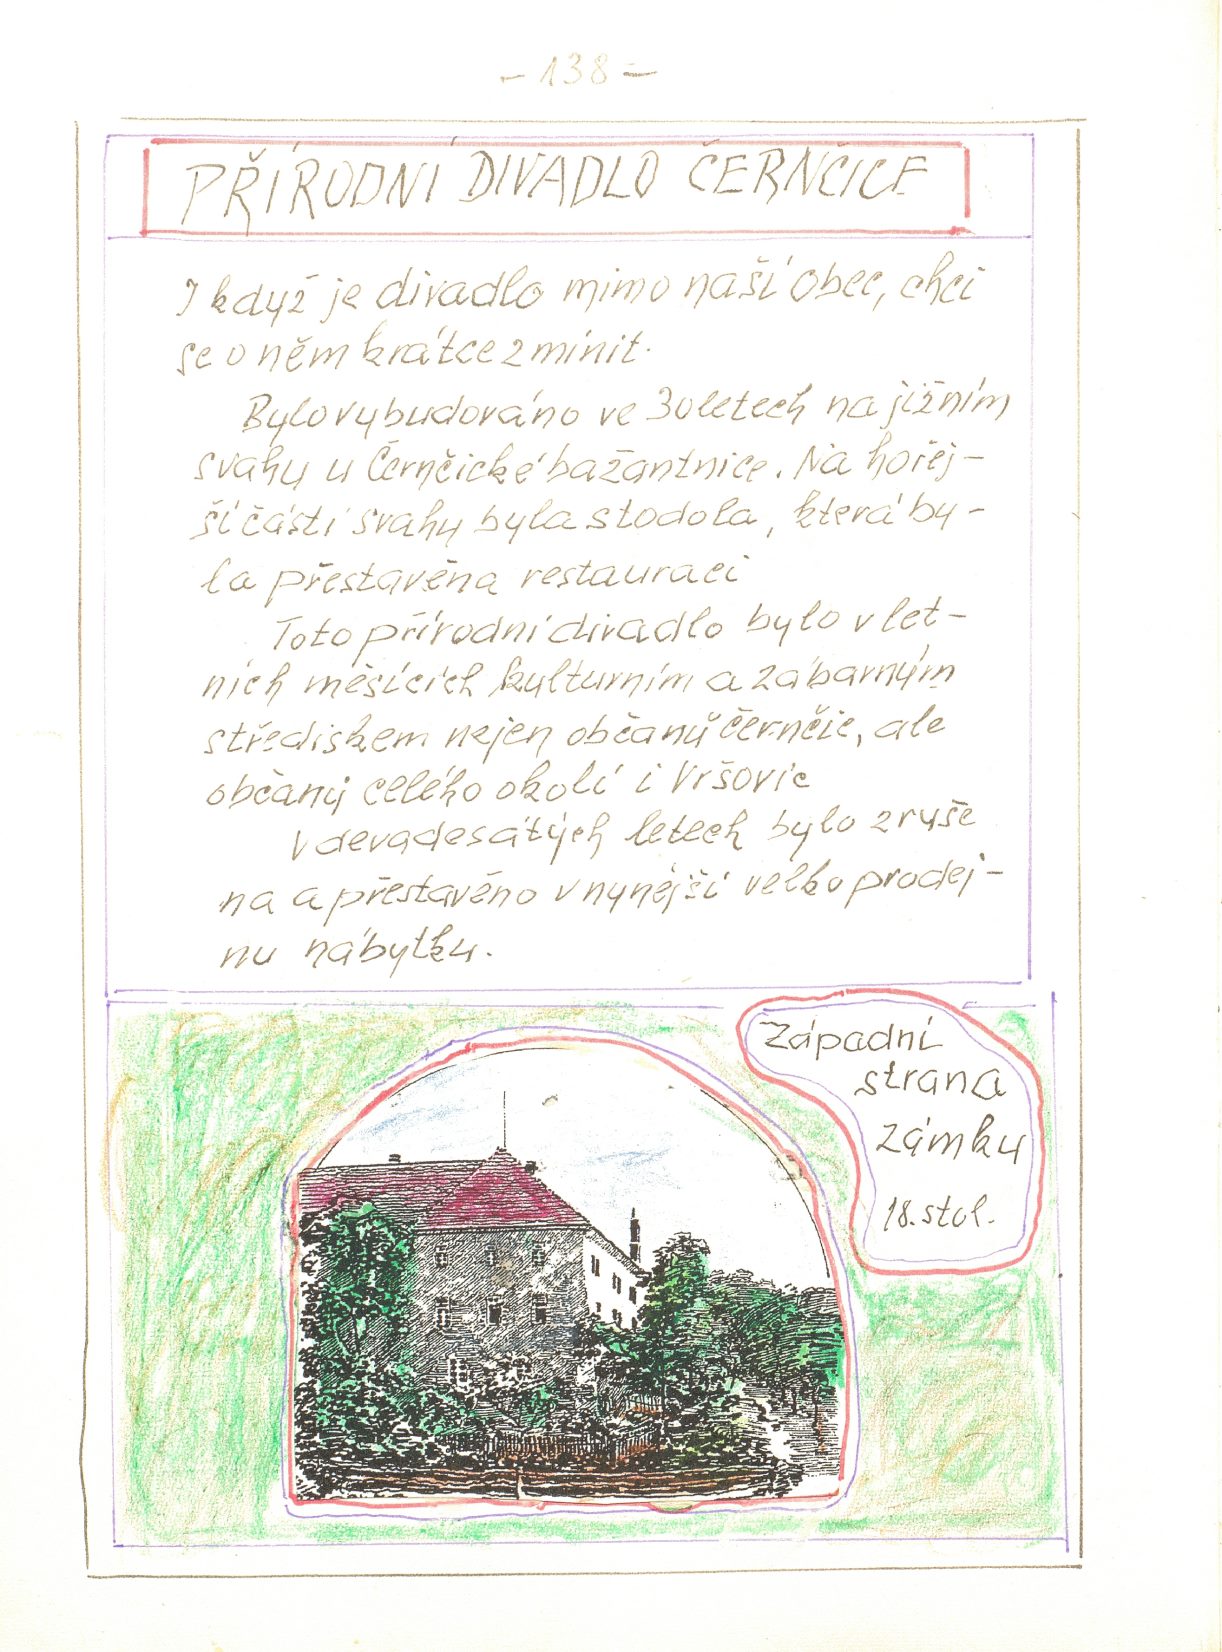 - 138 -
PŘÍRODNÍ DIVADLO ČERNČICE
I když je divadlo mimo naší obec, chci
se o něm krátce zmínit.
Bylo vybudováno ve 30letech na jižním
svahu u Černčické bažantnice. Na hořej-
ší části svahu byla stodola, která by-
la přestavěna restauraci
Toto přírodní divadlo bylo v let-
ních měsících kulturním a zábavným
střediskem nejen občanů černčic, ale
občany celého okolí i Vršovic
V devadesátých letech bylo zruše
na a přestavěno v nynější velkoprodej-
nu nábytku.
Západní
strana
zámku
18. stol.